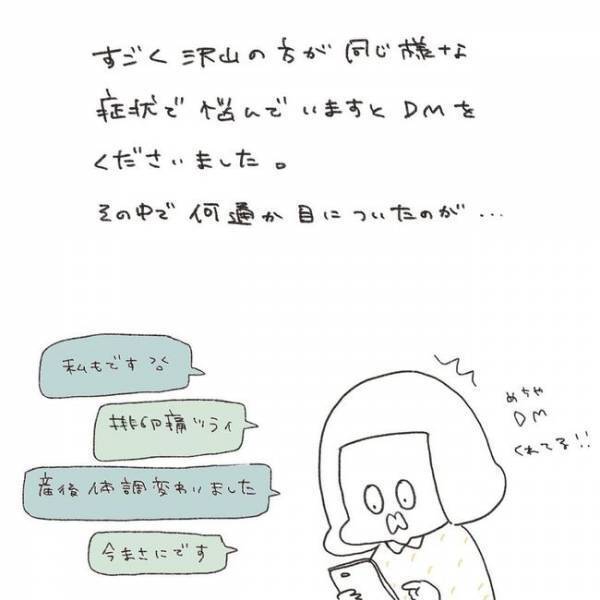 すごく沢山の方が同じ様な
症状で悩んでいますとDMを
くださいました。
その中で何通か目についたのが…
私もです
排卵痛ツライ
産後体調変わいました
今まさにです
めちゃ
DM
くれてる!!